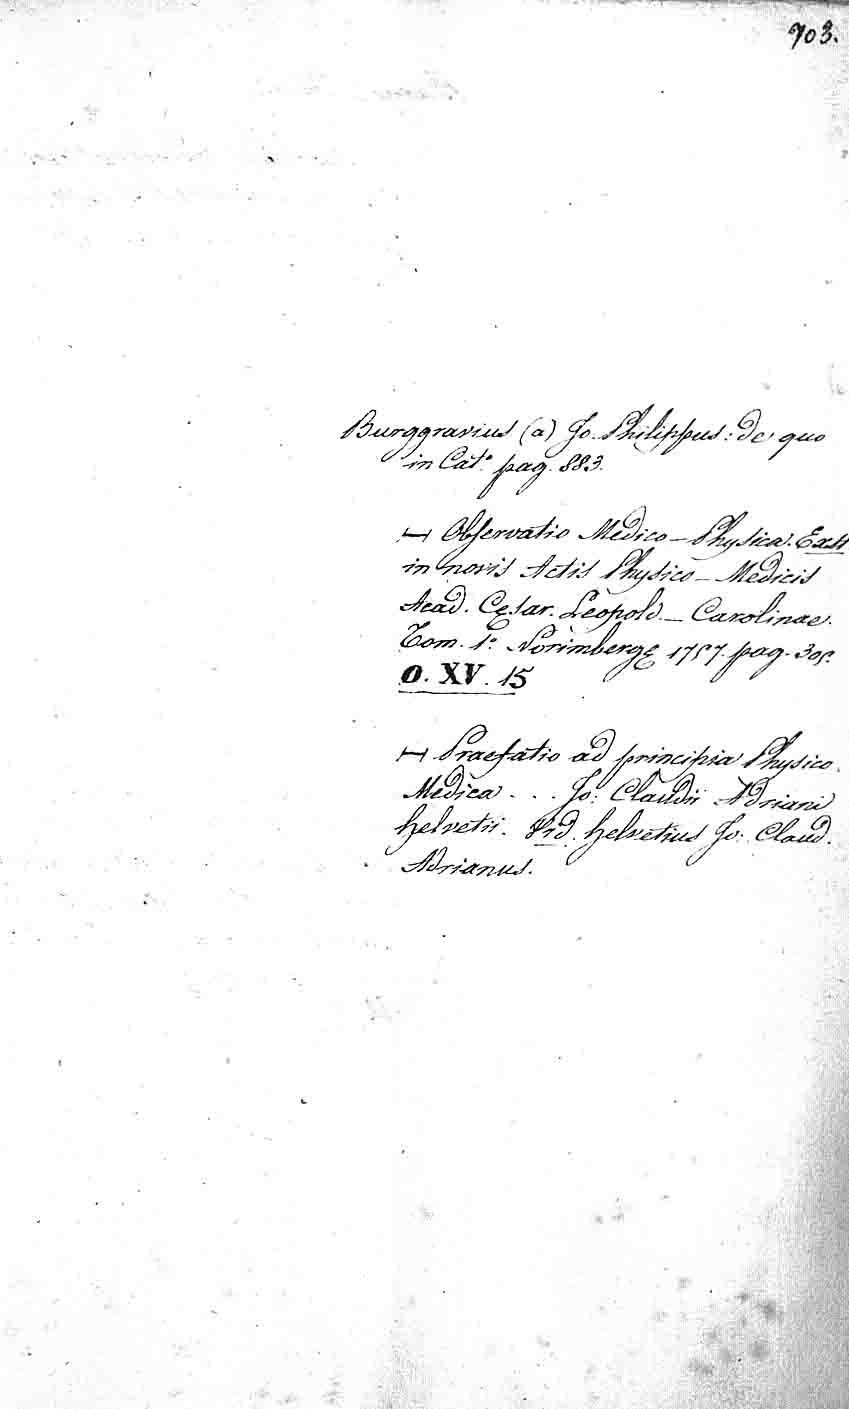 703.
Burggravius (a) Jo. Philippus: de quo
in Cat.º pag. 883.
— Observatio Medico-Physica. Extt
in novis Actis Physico-Medicis
Acad. Cęsar. Leopold-Carolinae.
Tom. 1.º Norimbergę 1757. pag. 305.
O. XV. 15
— Praefatio ad principia Physico
Medica . . . Jo: Claudii Adriani
helvetii. Vid. helvetius Jo: Claud.
Adrianus.